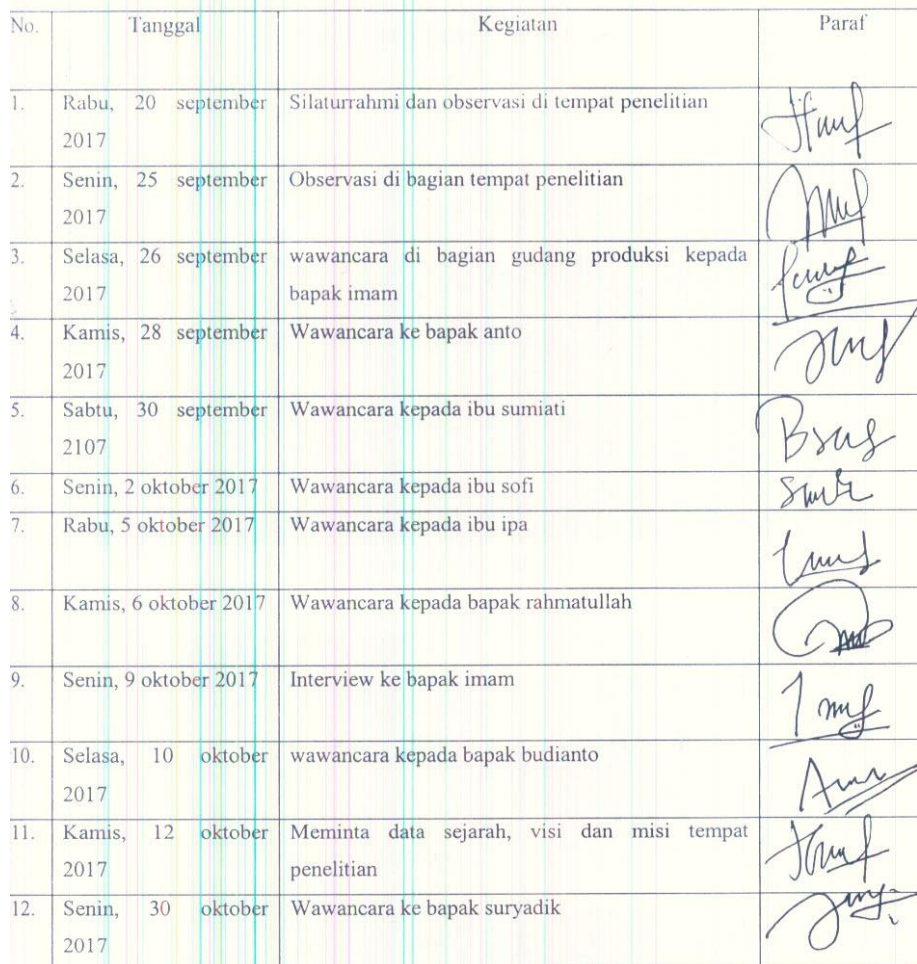 No. Tanggal Kegiatan Paraf
1. Rabu, 20 september Silaturrahmi dan observasi di tempat penelitian
2017
2. Senin, 25 september Observasi di bagian tempat penelitian
2017
3. Selasa, 26 september wawancara di bagian gudang produksi kepada
2017 bapak imam
4. Kamis, 28 september Wawancara ke bapak anto
2017
5. Sabtu, 30 september Wawancara kepada ibu sumiati
2107
6. Senin, 2 oktober 2017 Wawancara kepada ibu sofi
7. Rabu, 5 oktober 2017 Wawancara kepada ibu ipa
8. Kamis, 6 oktober 2017 Wawancara kepada bapak rahmatullah
9. Senin, 9 oktober 2017 Interview ke bapak imam
10. Selasa, 10 oktober wawancara kepada bapak budianto
2017
11. Kamis, 12 oktober Meminta data sejarah, visi dan misi tempat
2017 penelitian
12. Senin, 30 oktober Wawancara ke bapak suryadik
2017